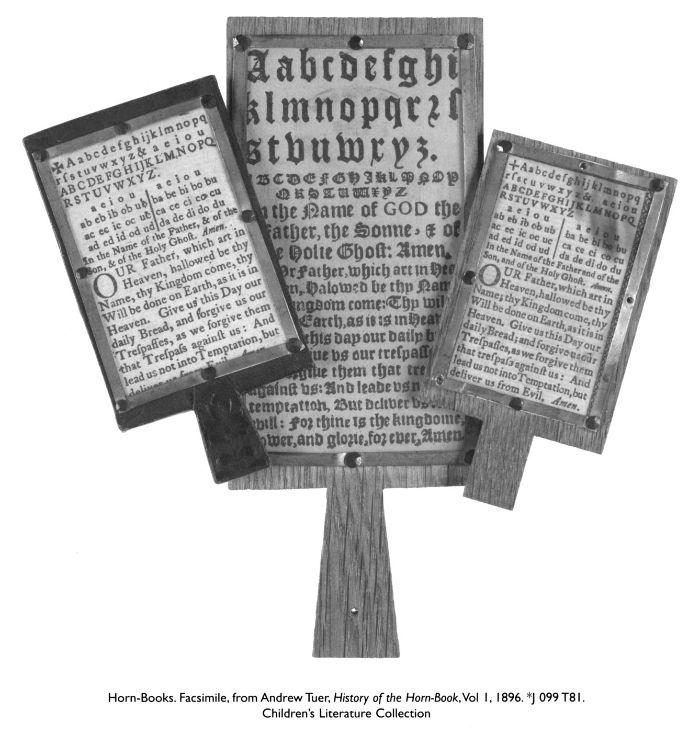 ✠Aabcdefghijklmnopq
rſstuvwxyz& aeiou
ABCDEFGHIJKLMNOPQ
RSTUVWXYZ.
a e i o u | a e i o u
ab eb ib ob ub | ba be bi bo bu
ac ec ic oc uc | ca ce ci co cu
ad ed id od ud | da de di do du
In the Name of the Father, & of the
Son, & of the Holy Ghoſt. Amen.
OUR Father, which art in
Heaven, hallowed be thy
Name; thy Kingdom come, thy
Will be done on Earth, as it is in
Heaven. Give us this Day our
daily Bread, and forgive us our
Treſpaſſes, as we forgive them
that Treſpaſs againſt us: And
lead us not into Temptation, but
deliver us
Aabcdefghi
klmnopqrꝛſ
stvuwxyz.
ABCDEFGHIKLMNOP
QRSTUWXYZ
In the Name of GOD the
Father, the Sonne, & of
the Holie Ghoſt: Amen.
Our Father, which art in
Halowed be thy
come: Thy
Earth, as it is in
this day our daily
vs our treſpaſſ
them that
againſt vs: And leade vs
temptation, But deliver vs
evill: For thine is the kingdome,
power, and glorie, for ever, Amen
+Aabcdefghijklmnopq
rſstuvwxyz& aeiou
ABCDEFGHIJKLMNOPQ
RSTUVWXYZ
a e i o u | a e i o u
ab eb ib ob ub | ba be bi bo bu
ac ec ic oc uc | ca ce ci co cu
ad ed id od ud | da de di do du
In the Name of the Father and of the
Son, and of the Holy Ghoſt. Amen.
OUR Father, which art in
Heaven, hallowed be thy
Name; thy Kingdom come, thy
Will be done on Earth, as it is in
Heaven. Give us this Day our
daily Bread; and forgive us our
Treſpaſſes, as we forgive them
that treſpaſs againſt us: And
lead us not into Temptation, but
deliver us from Evil. Amen.
Horn-Books. Facsimile, from Andrew Tuer, History of the Horn-Book, Vol 1, 1896. *J 099 T81.
Children's Literature Collection